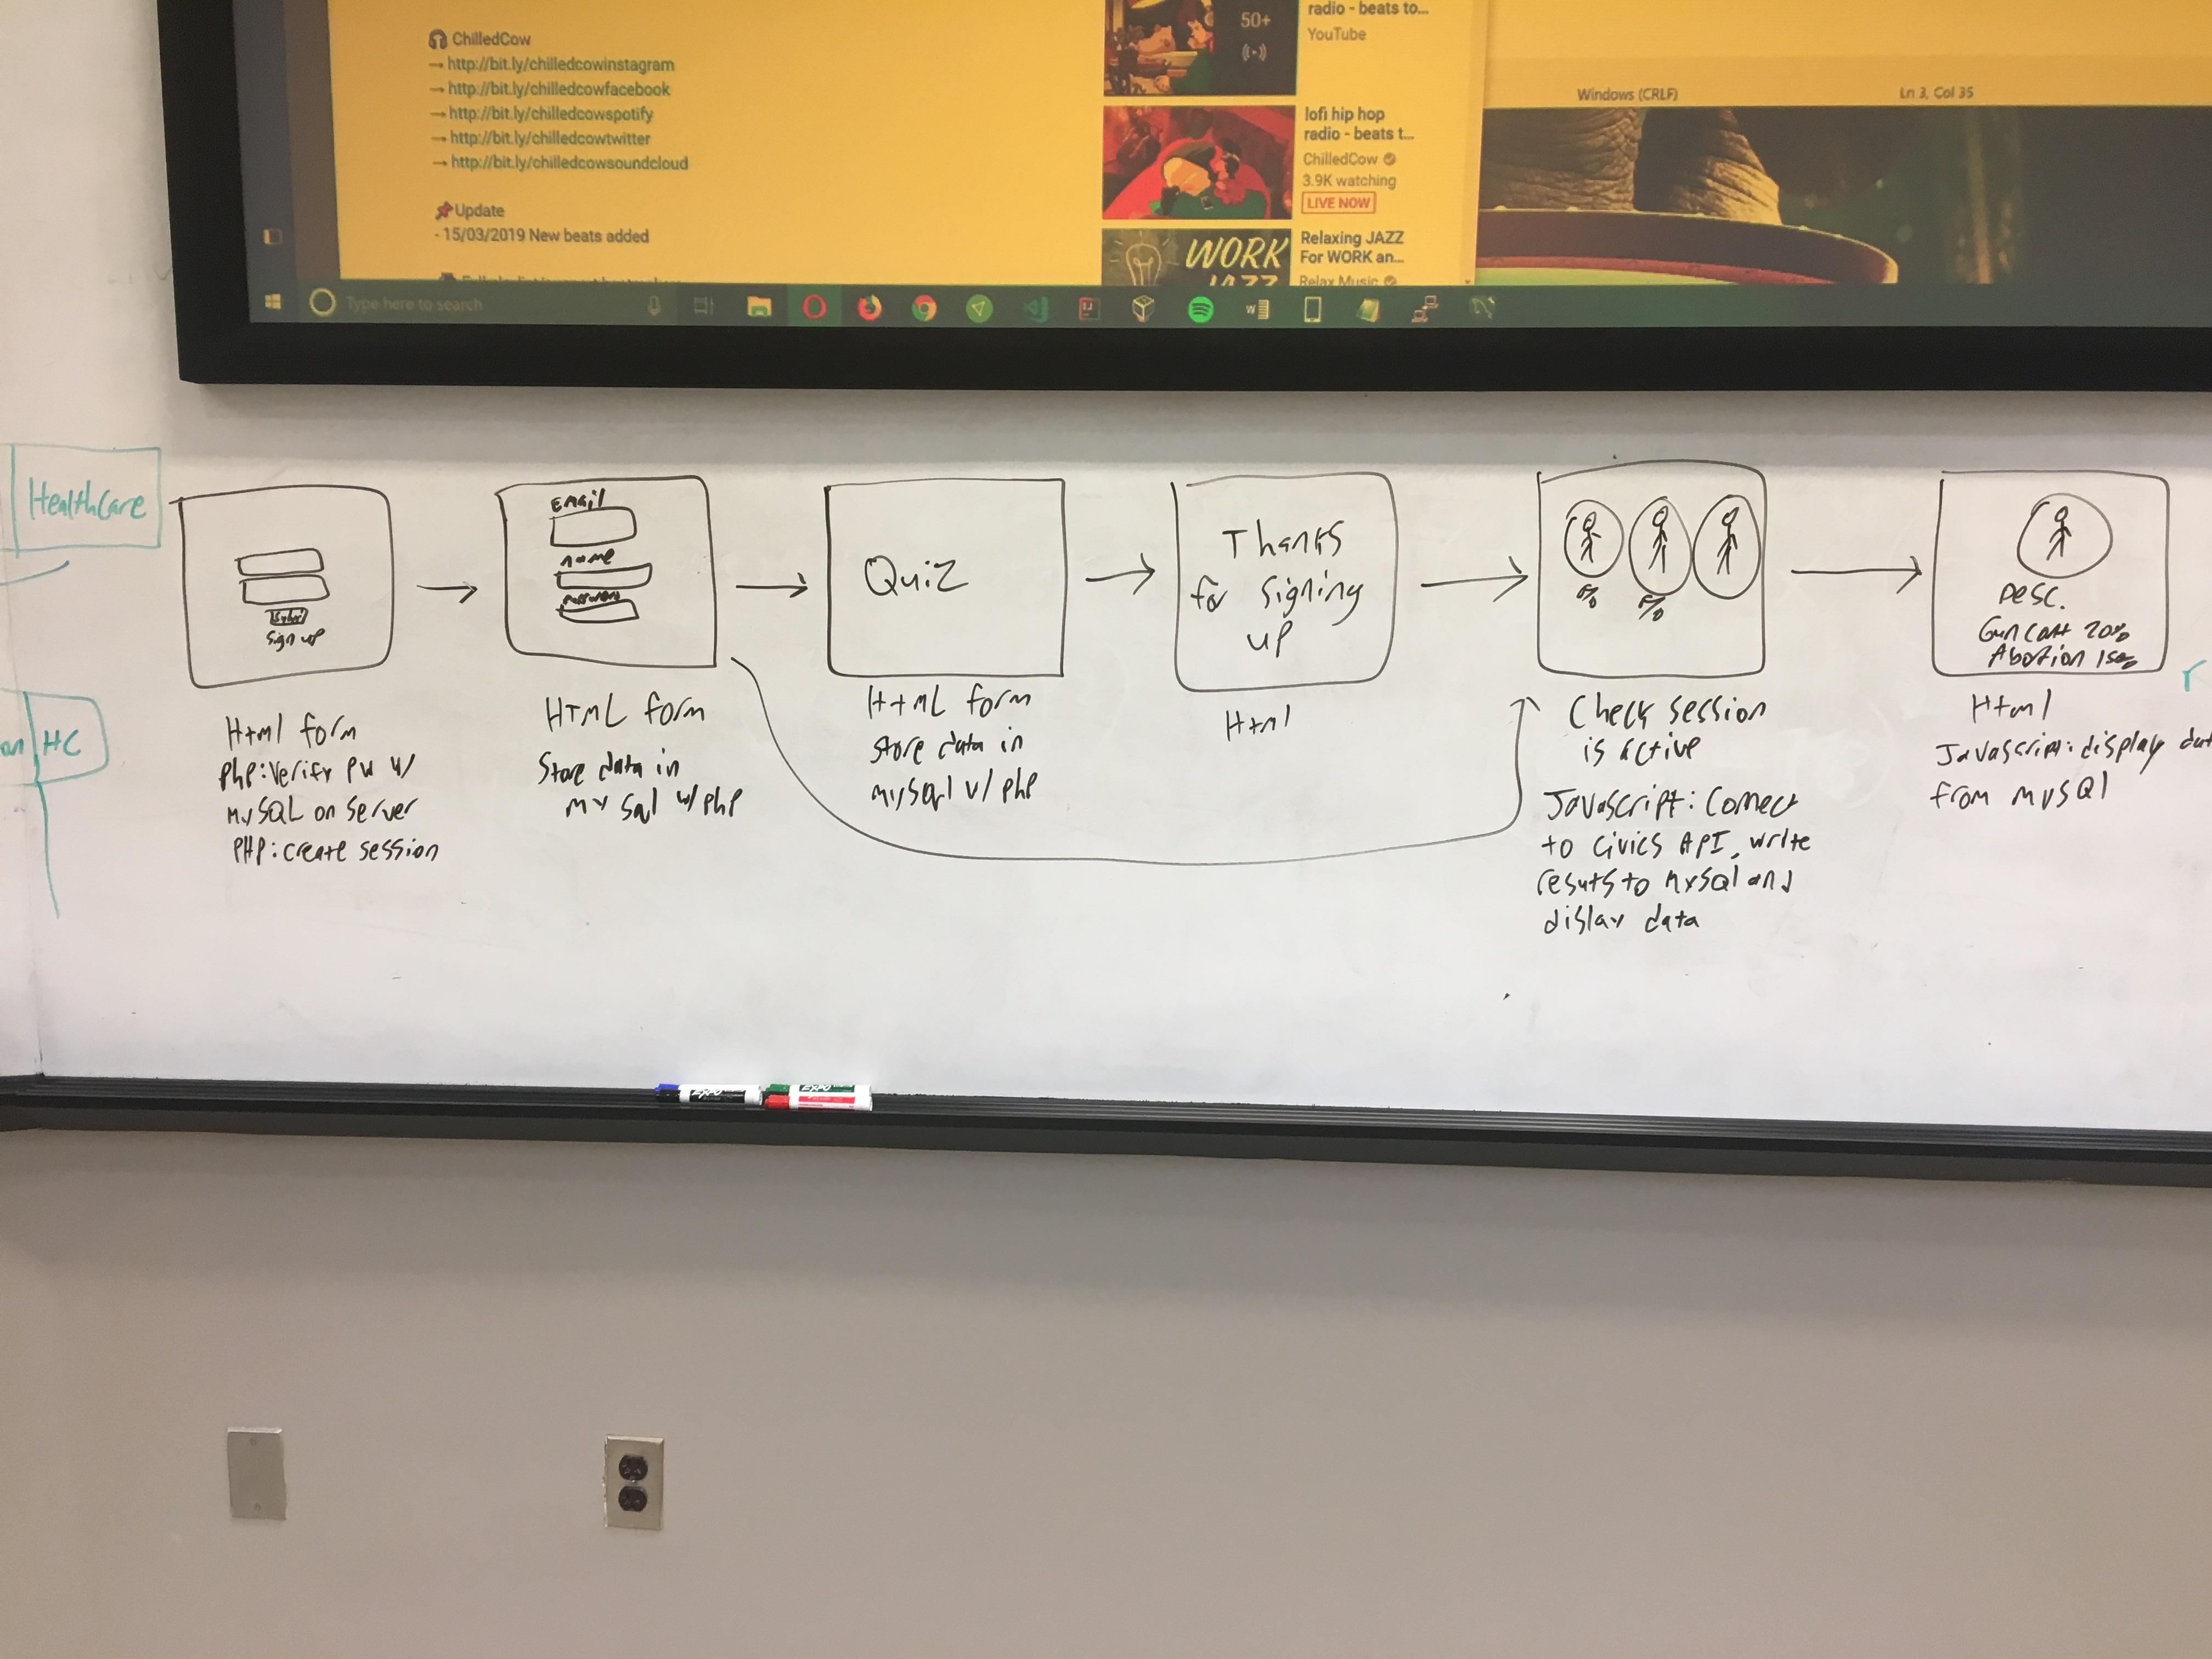 ChilledCow
→ http://bit.ly/chilledcowinstagram
→ http://bit.ly/chilledcowfacebook
→ http://bit.ly/chilledcowspotify
→ http://bit.ly/chilledcowtwitter
→ http://bit.ly/chilledcowsoundcloud
Update
- 15/03/2019 New beats added
50+
radio - beats to...
YouTube
lofi hip hop
radio - beats t...
ChilledCow
3.9K watching
LIVE NOW
WORK
JAZZ
Relaxing JAZZ
For WORK an...
Relax Music
Windows (CRLF)
Ln 3, Col 35
Type here to search
HealthCare
HC
sign up
Html form
PhP: Verify PW w/
MySQL on Server
PHP: create session
Email
name
password
HTML form
Store data in
my sql w/ php
Quiz
HtmL form
store data in
mysql w/ php
Thanks
for signing
up
Html
%
%
Check session
is active
Javascript: Connect
to civics API, write
resuts to mysql and
dislay data
Desc.
20%
Abortion 15%
Html
Javascript: display dat
from mySQl
EXPO
EXPO